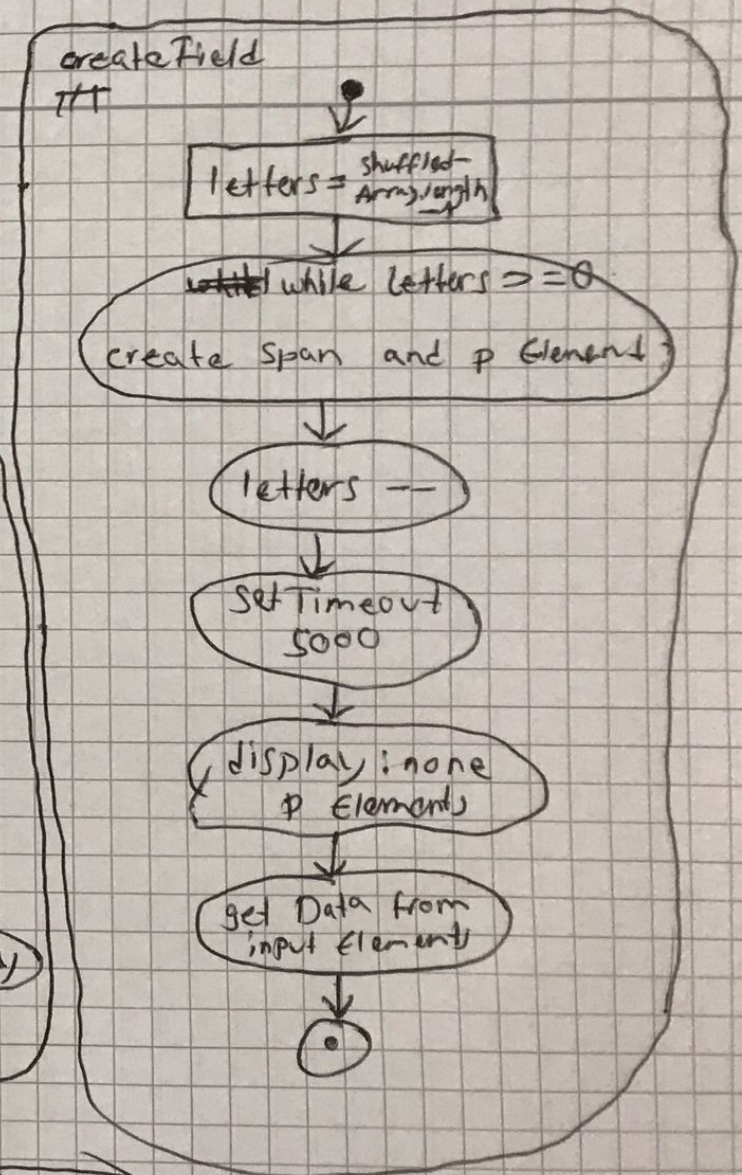 createField
letters = shuffled-
Array.length
while letters >= 0
create span and p Element
letters --
setTimeout
5000
display: none
p Elements
get Data from
input Elements